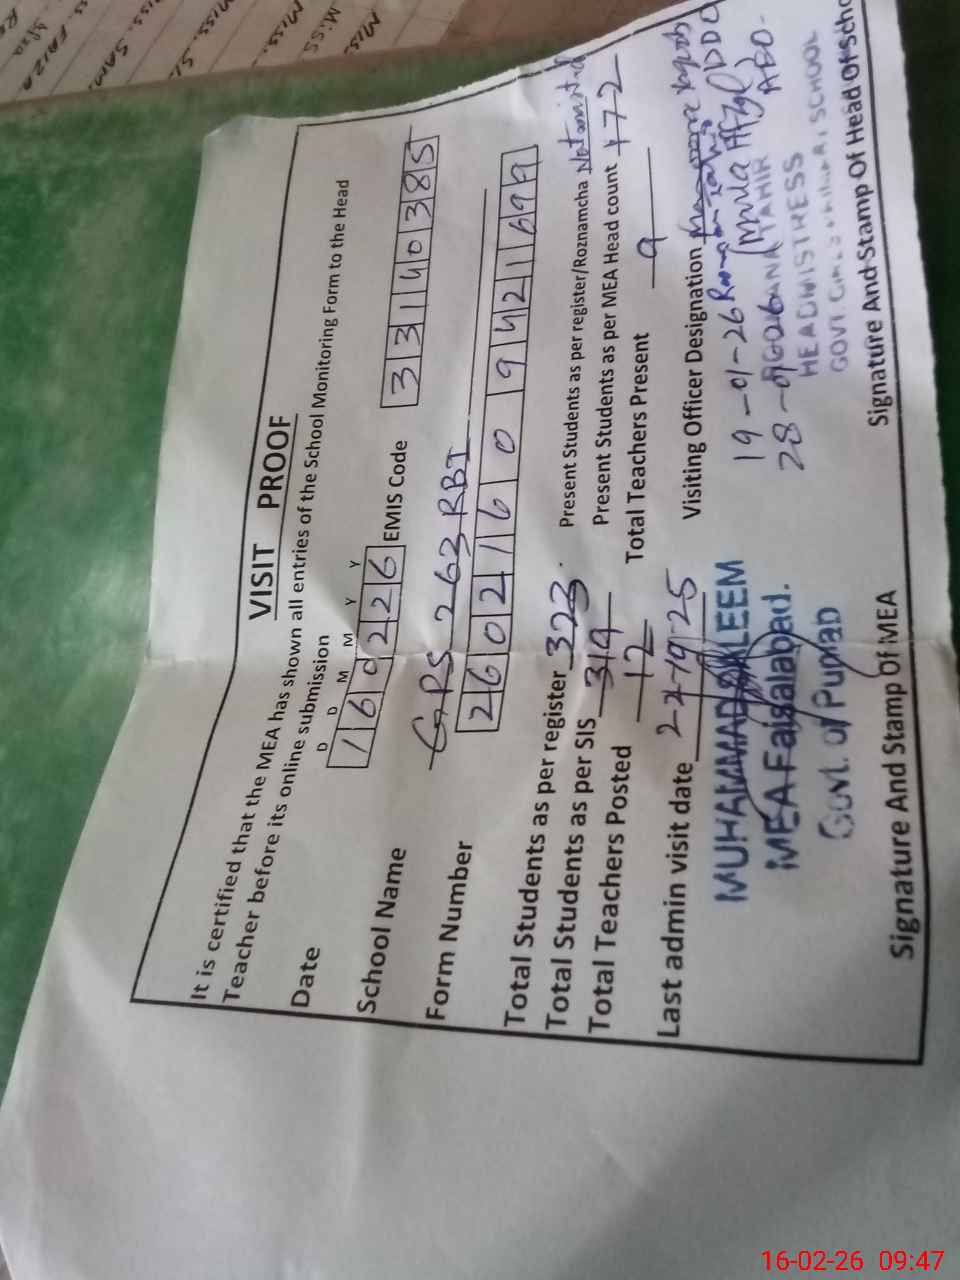 VISIT PROOF
It is certified that the MEA has shown all entries of the School Monitoring Form to the Head
Teacher before its online submission
D D M M Y Y
Date 160226 EMIS Code 33140385
School Name GPS 263 RBI
Form Number 260216009421699
Total Students as per register 323. Present Students as per register/Roznamcha Not
Total Students as per SIS 319 Present Students as per MEA Head count 172
Total Teachers Posted 12 Total Teachers Present 9
Last admin visit date Visiting Officer Designation
19-01-26 DDO
28-01-26 AEO
MUHAMMAD KALEEM
MEA Faisalabad.
Govt. of Punjab
TAHIR
HEADMISTRESS
GOVT. SCHOOL
Signature And Stamp Of MEA Signature And Stamp Of Head Of Scho
16-02-26 09:47